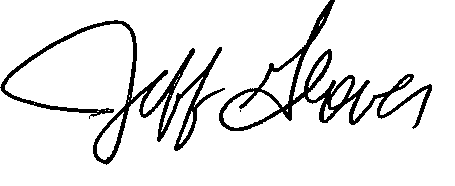 Jeff Glover